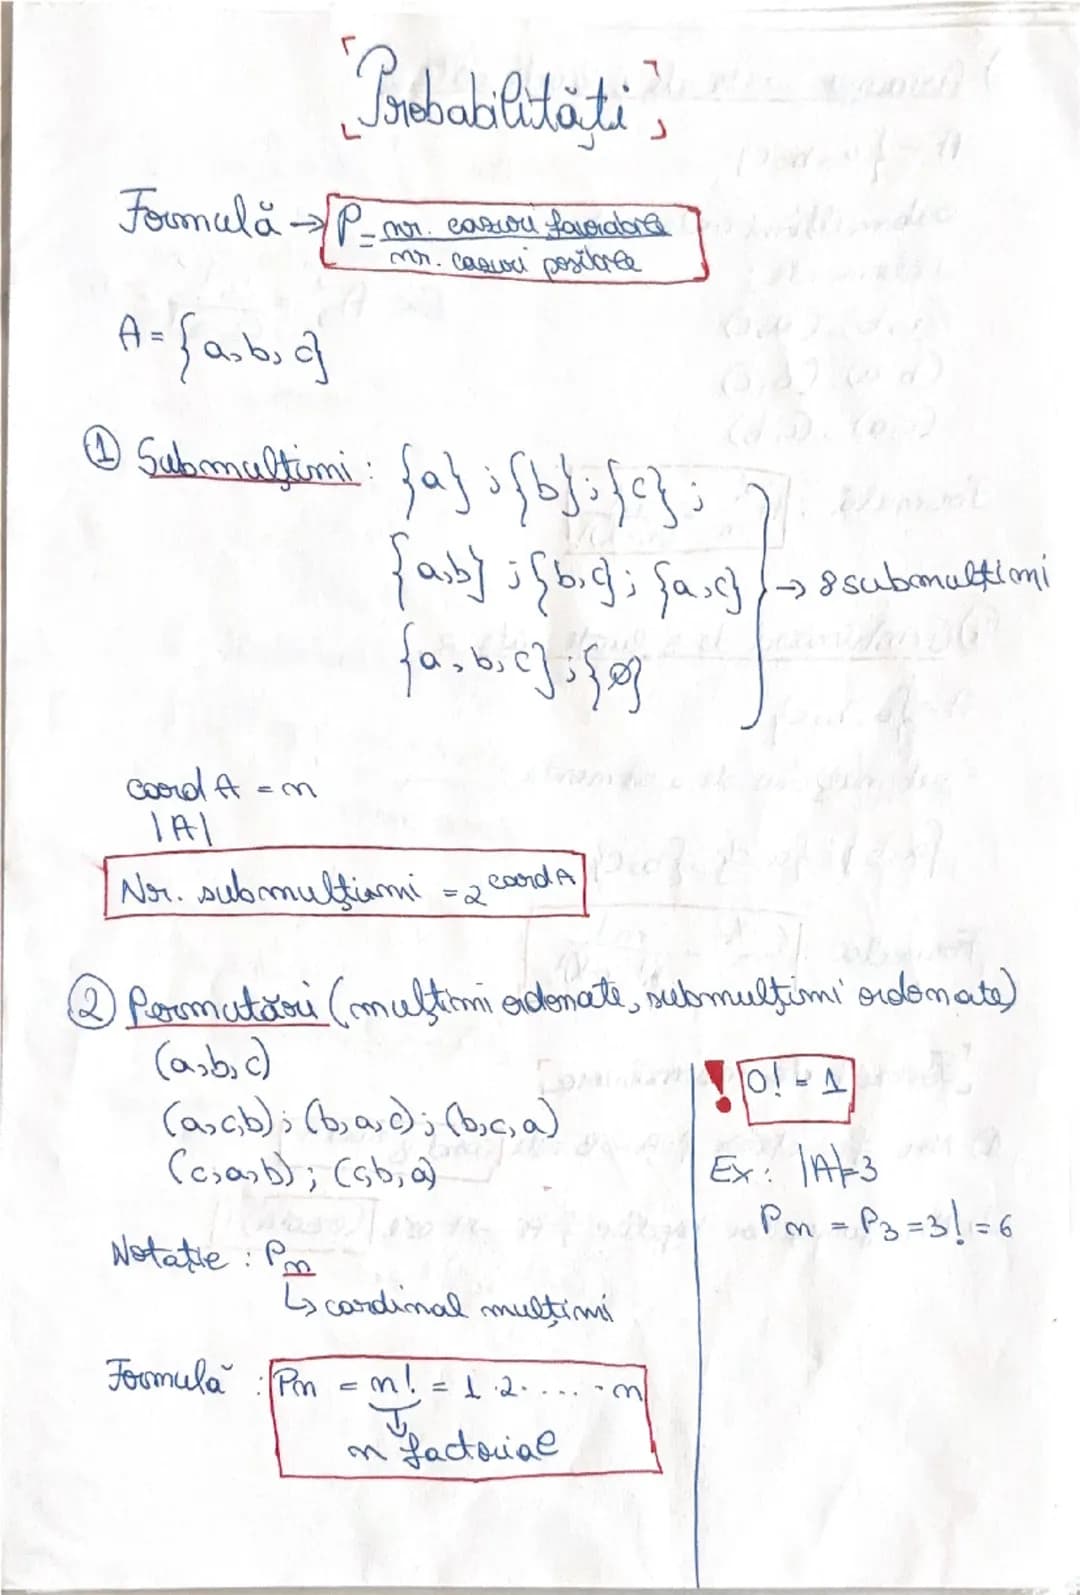 Probabilități
Formulă → P = nr. cazuri favorabile
nr. cazuri posibile
A = {a, b, c}
① Submulțimi: {a} ; {b} ; {c} ;
{a,b} ; {b,c} ; {a,c} → 8 submulțimi
{a, b, c} ; {∅}
card A = n
|A|
Nr. submulțimi = 2^card A
② Permutări (mulțimi ordonate, submulțimi ordonate)
(a, b, c)
(a, c, b) ; (b, a, c) ; (b, c, a)
(c, a, b) ; (c, b, a)
Notație : Pn
↳ cardinal mulțimi
Formulă : Pn = n! = 1 · 2 · .... · n
↓
n factorial
! 0! = 1
Ex : |A|=3
Pn = P3 = 3! = 6